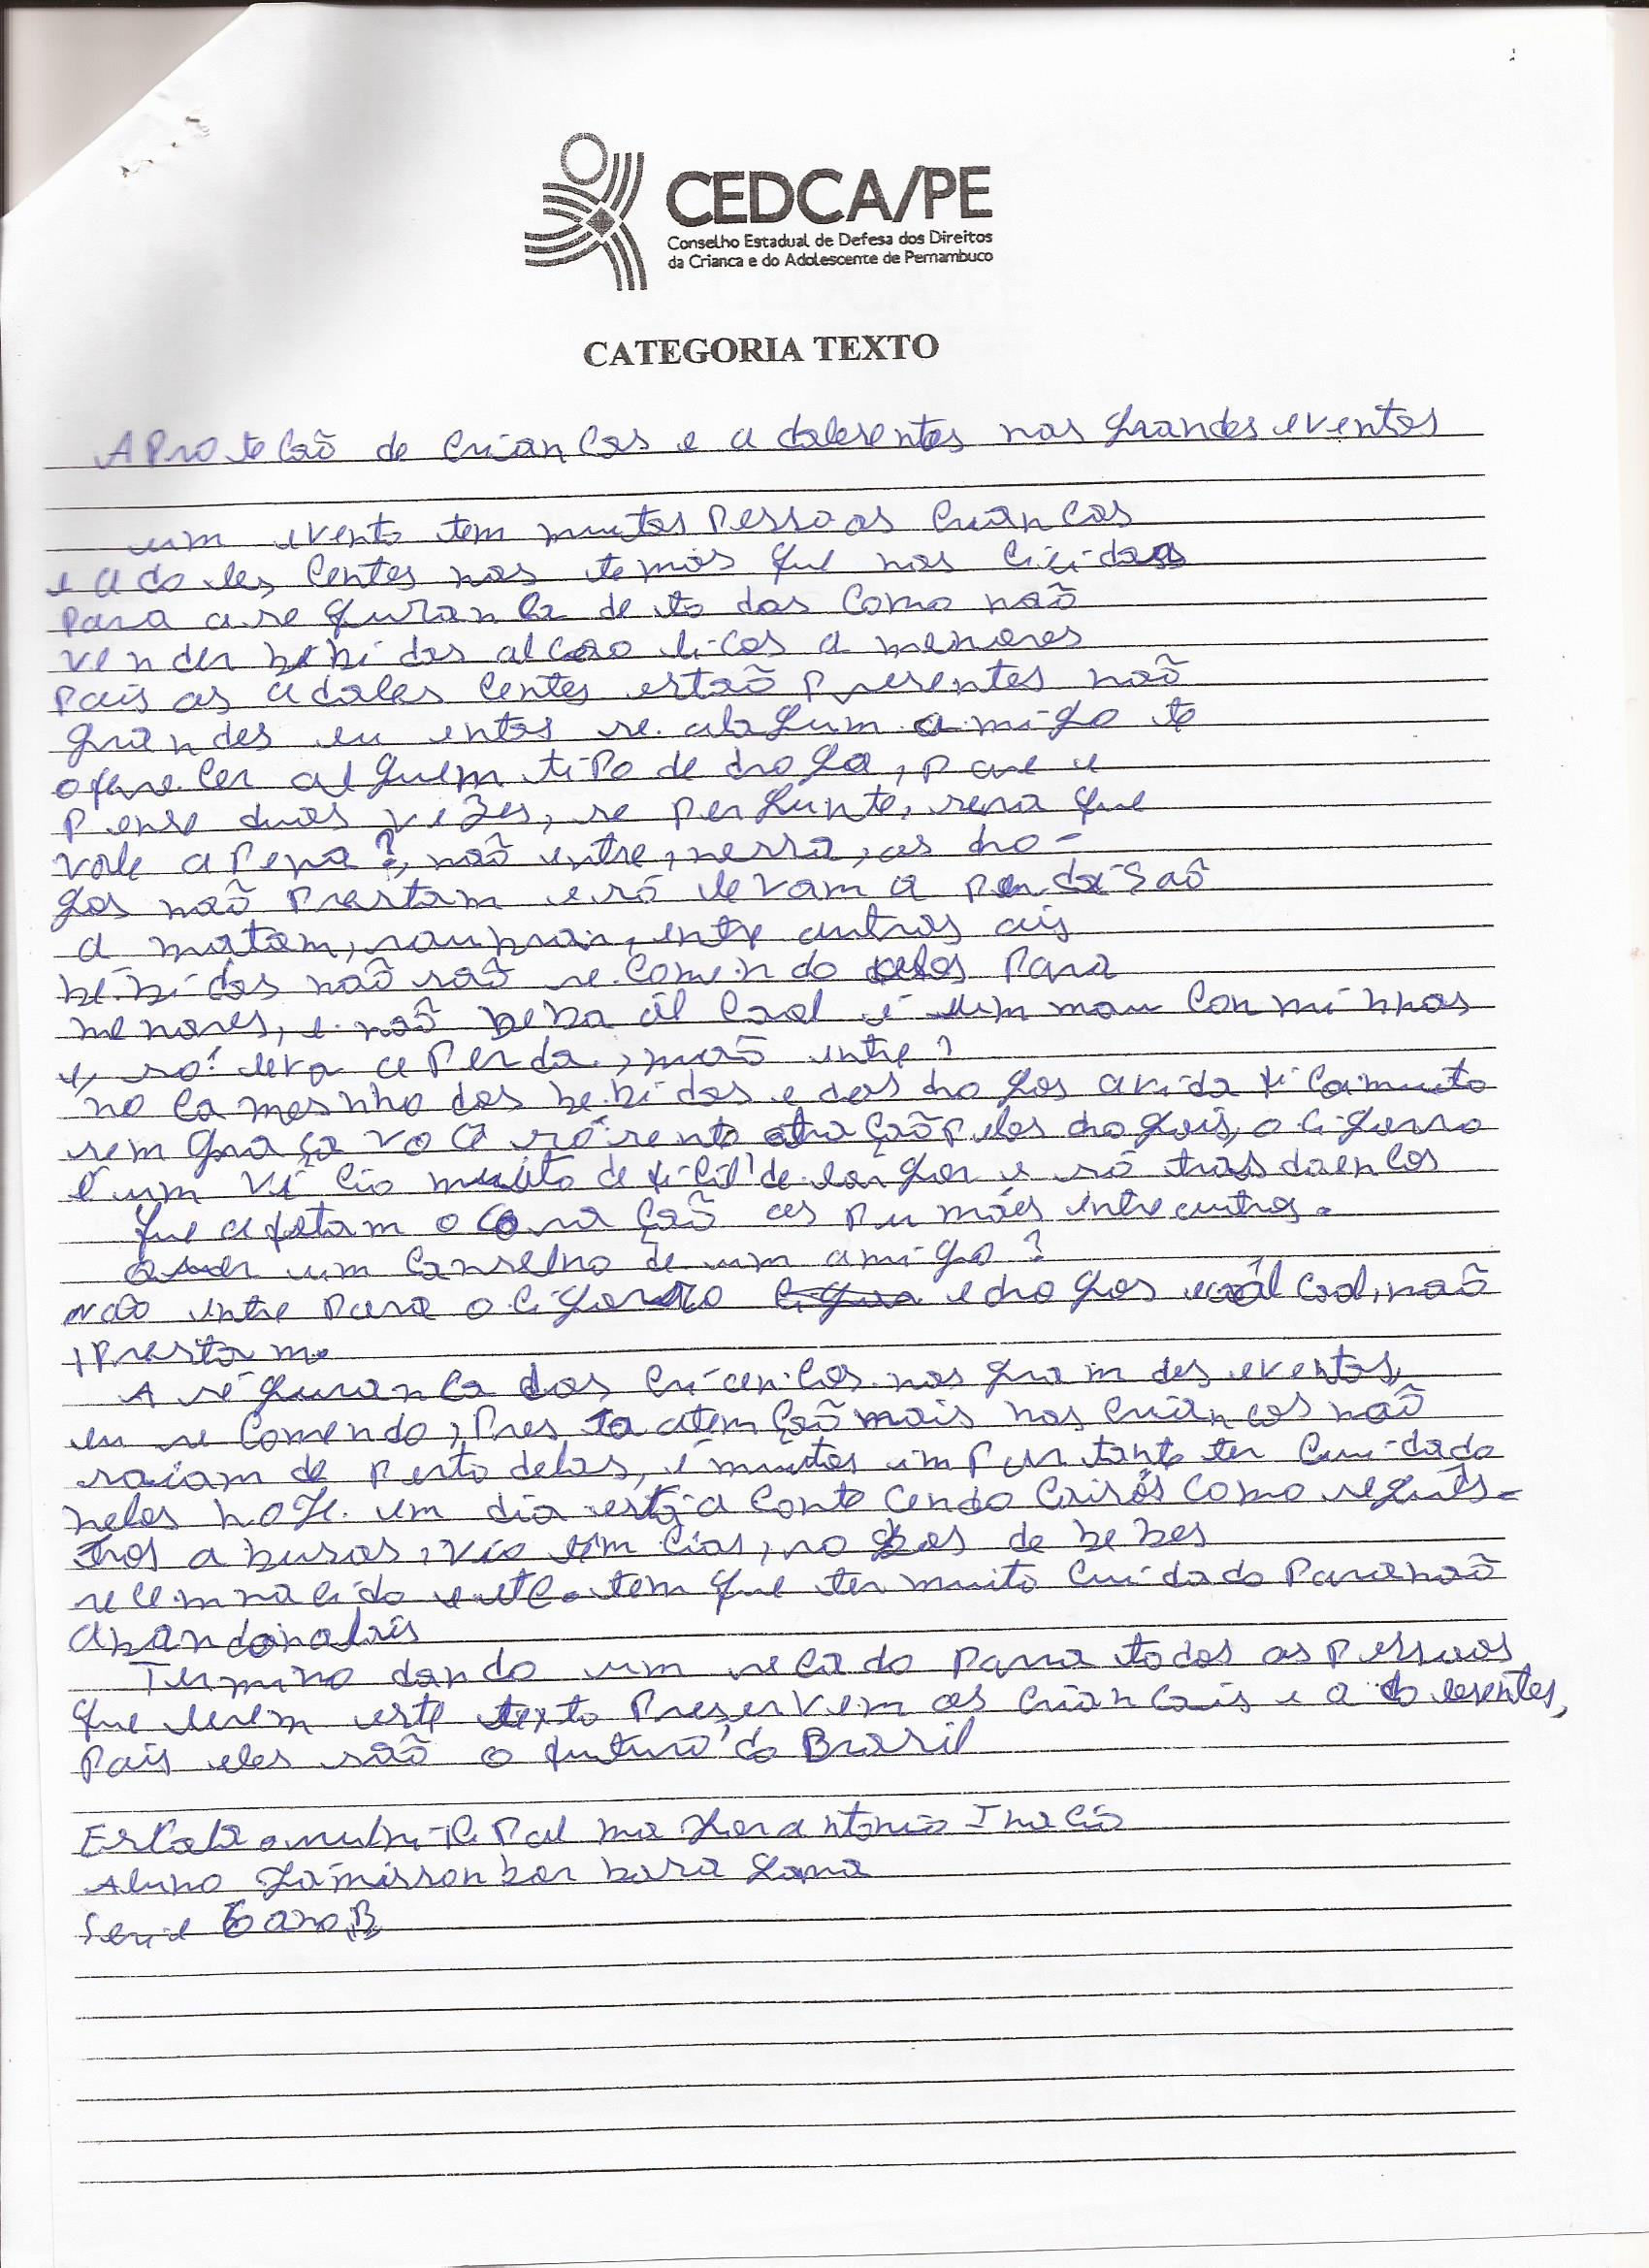 CEDCA/PE
Conselho Estadual de Defesa dos Direitos
da Crianca e do Adolescente de Pernambuco
CATEGORIA TEXTO
A Proteção de crianças e adolesentes nos grandes eventos
um evento tem muitas pessoas crianças
e adoles centes nos temos que nos
para a segurança de todos como não
vender bebidas alcoolicas a menores
pois os adoles centes estão presentes não
grandes eventos se algum amigo te
oferecer alguem tipo de droga, pare e
pense duas vezes, se pergunte, sera que
vale a pena?, não entre, nessa, as dro-
gas não prestam e só levam a perdisão
a matam, roubrar, entre outros
bebidas não são recomendo para
menores, e não beba álcool é um mau
e, só leva a perda, não entre?
no das bebidas e das drogas a vida fica muito
sem graça você só sente atração pelas drogas, o cigarro
é um vício muito deficil de largar e só tras doenças
que afetam o coração os pumões entre outros.
Quer um conselho de um amigo?
não entre para o cigarro e drogas álcool, não
prestam.
A segurança das crianças nos gramdes eventos,
eu recomendo, presta atemção mais nas crianças não
saiam de perto delas, é muitos importante ter cuidado
nelas hoje um dia está contecendo como sequés-
tros abusos, violemcias, de bebes
recemnacido e etc. tem que ter muito cuidado para não

Termino dando um recado para todas as pessoas
que lerem este texto preservem as criancais e adolesentes,
pois eles são o futuro do Brasil
Escola municipal Antonio Inacio
Aluno Jamisson barbara
Serie 6 ano B